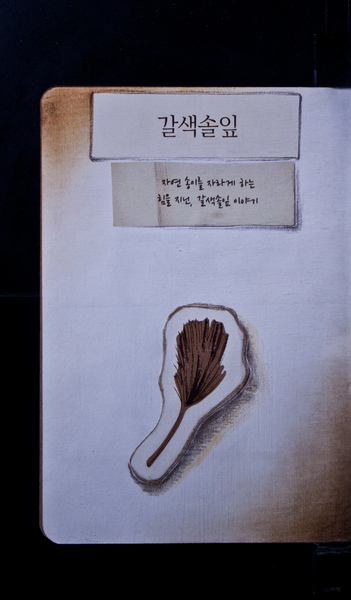 갈색솔잎
자연 송이를 자라게 하는
힘을 지닌, 갈색솔잎 이야기